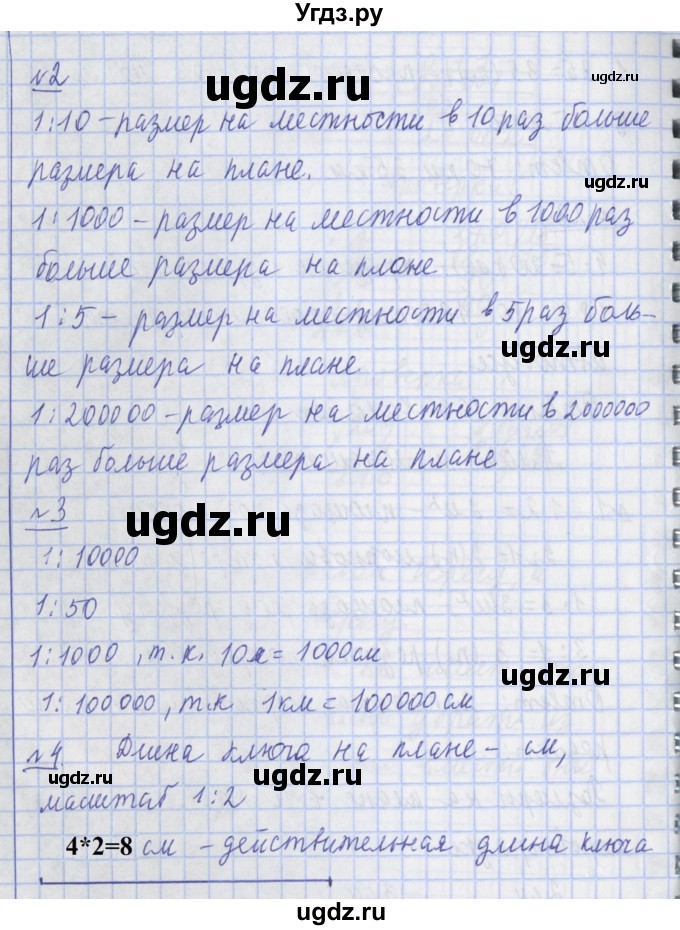 Угдз.ру
№2
ugdz.ru
ugdz.ru
1:10 - размер на местности в 10 раз больше
размера на плане.
ugdz.ru
1:1000 - размер на местности в 1000 раз
больше размера на плане
1:5 - размер на местности в 5 раз боль-
ugdz.ru
ше размера на плане
1:200000 - размер на местности в 2000000
раз больше размера на плане
ugdz.ru
№3
ugdz.ru
1:10000
1:50
1:1000, т.к. 10м = 1000см
ugdz.ru
1:100000, т.к 1км = 100000см
№4. Длина ключа на плане - см,
ugdz.ru
ugdz.ru
масштаб 1:2
4*2=8 см - действительная длина ключа
ugdz.ru